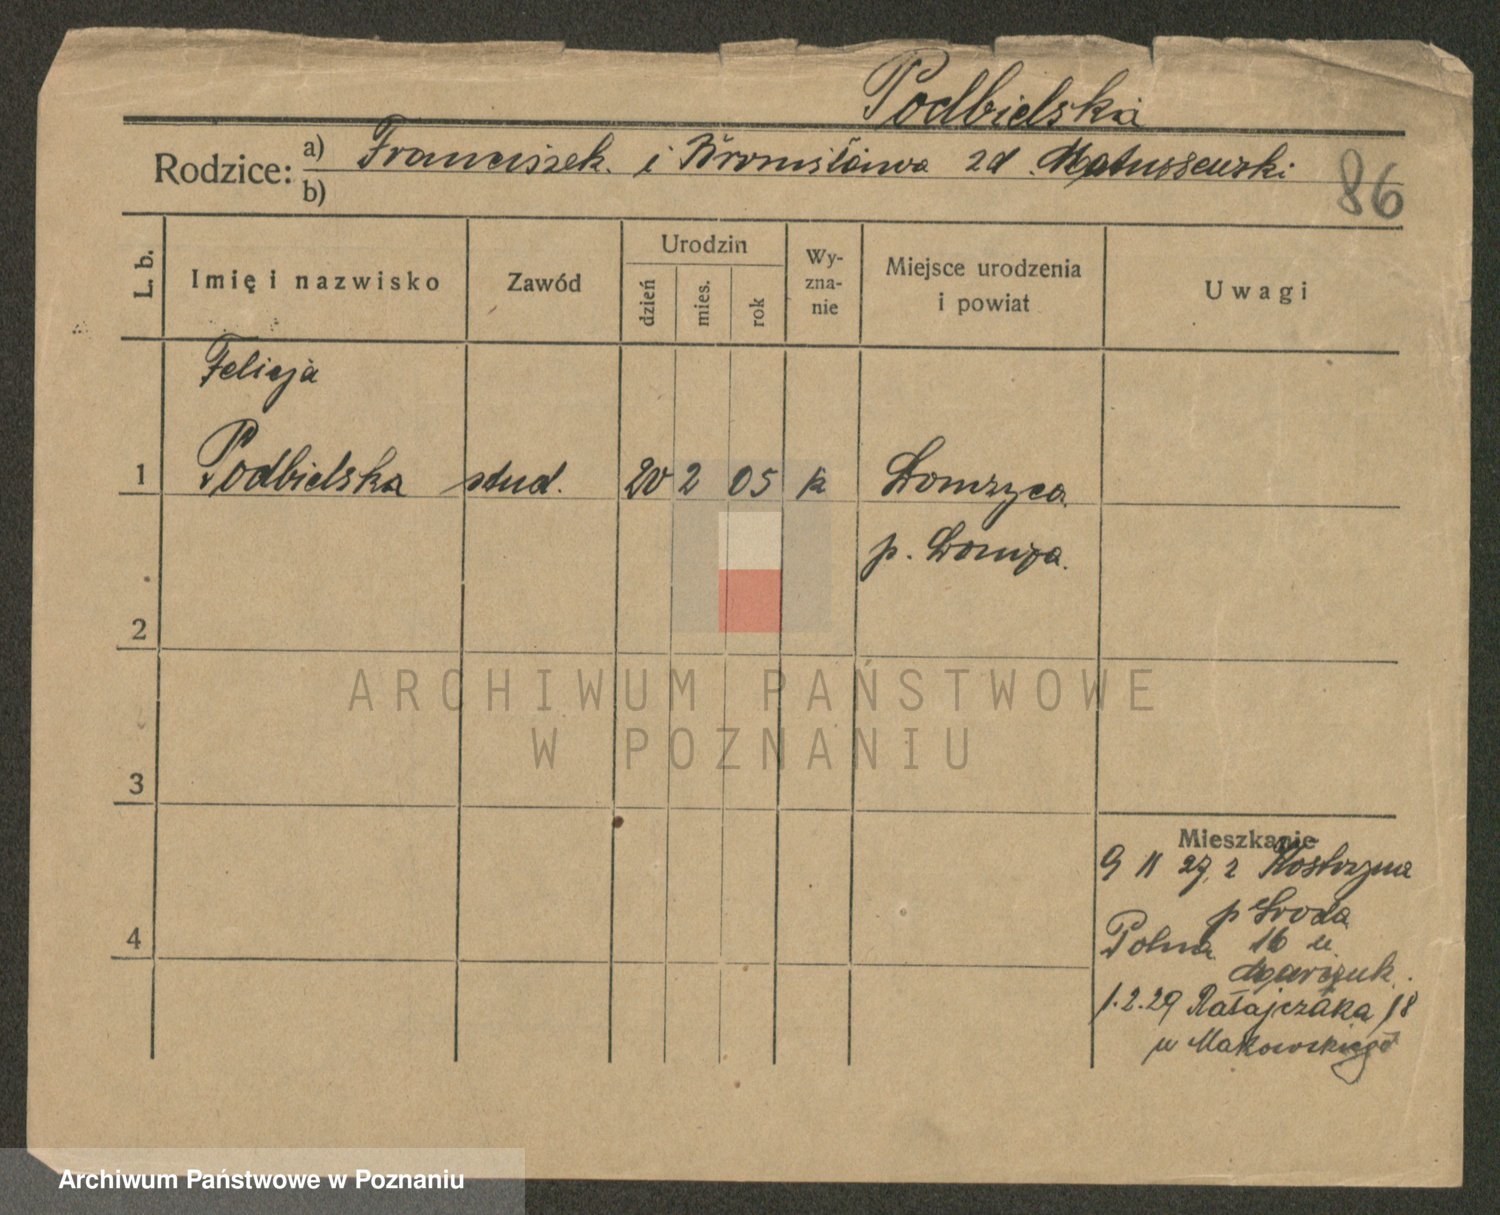 Podbielska
Rodzice: a) Franciszek. i Bronisława zd. Matuszewski
b)
86
L. b.
Imię i nazwisko
Zawód
Urodzin
dzień
mies.
rok
Wy-
zna-
nie
Miejsce urodzenia
i powiat
Uwagi
Felicja
1 Podbielska stud. 20 2 05 k Łomżyca
p. Łomża.
2
3
Mieszkanie
9 11 27, z Kostrzyna
p Środa
4
Polna 16 u
1.2.29 Ratajczaka 18
u Makowskiego
ARCHIWUM PAŃSTWOWE
W POZNANIU
Archiwum Państwowe w Poznaniu